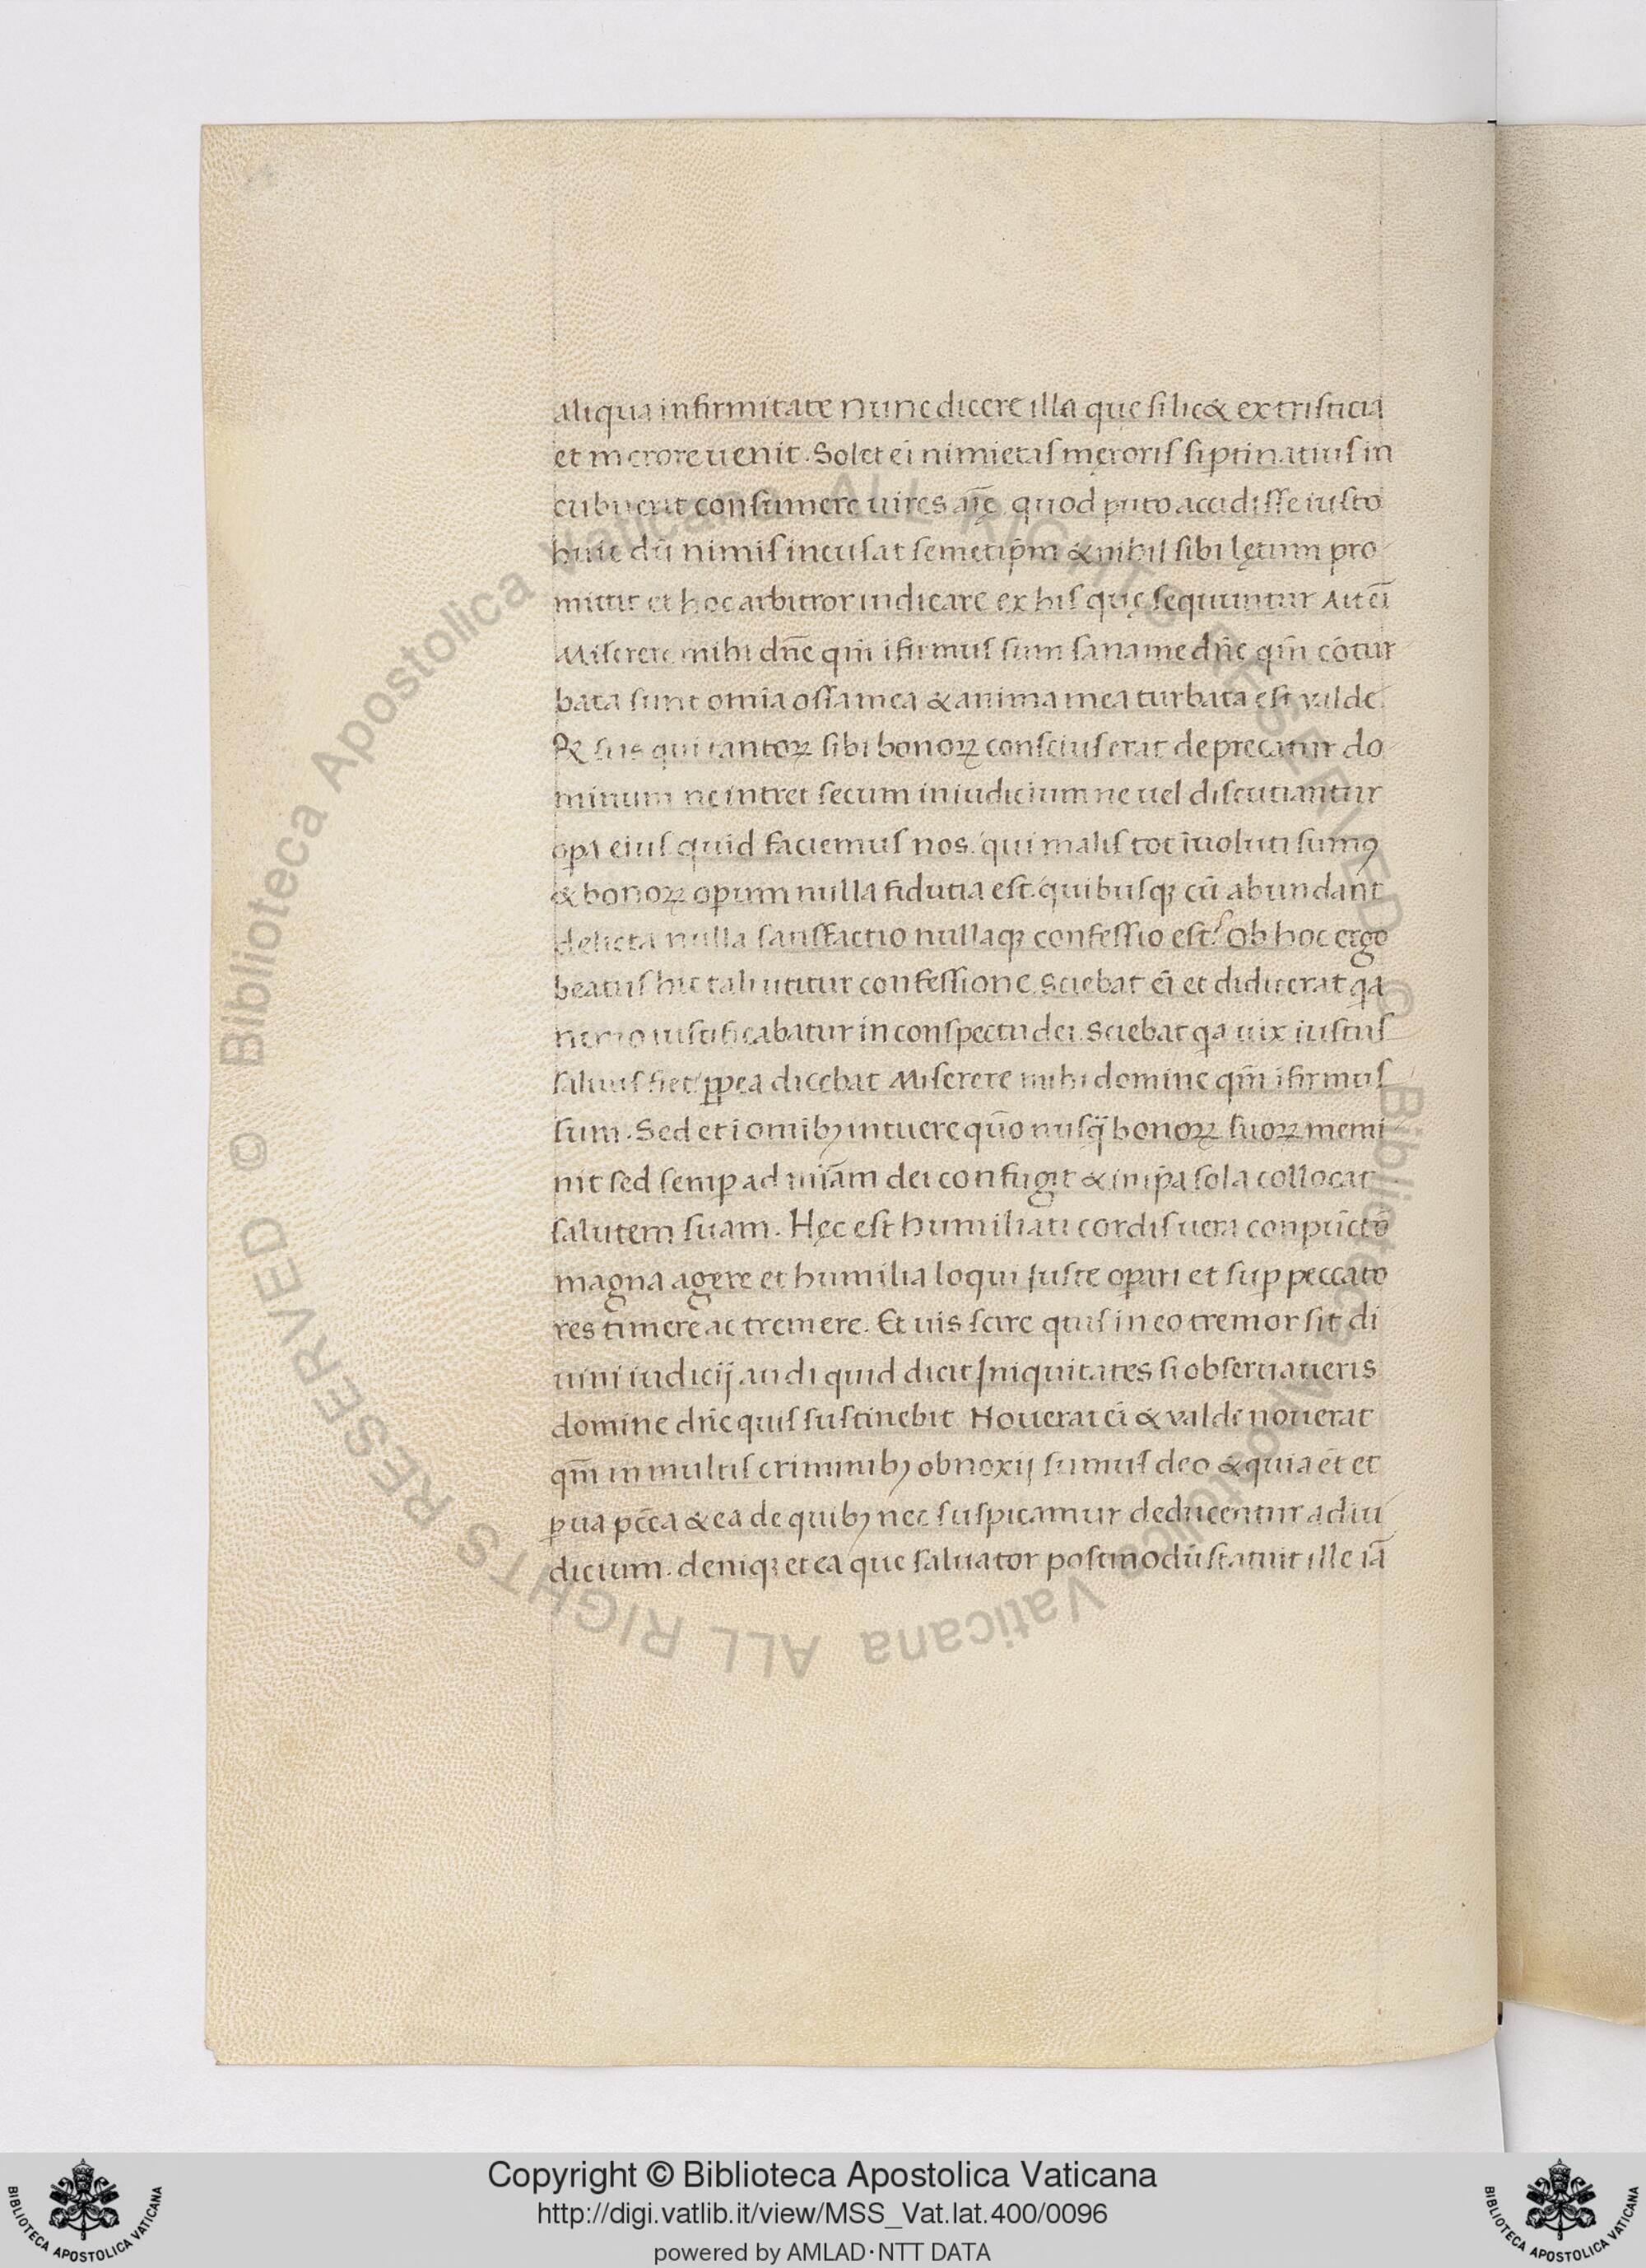 aliqua infirmitate nunc dicere illa que silic& ex tristicia
et merore uenit. Solet ei nimietas męroris si ptinatius in
cubuerit consumere uires aīę quod puto accidisse iusto
huic dū nimis incusat semetip̄m & nihil sibi lętum pro
mittit et hoc arbitror indicare ex his quę sequuntur Ait eī
Miserere mihi dn̄e qm̄ ifirmus sum sana me dn̄e qm̄ cōtur
bata sunt omīa ossa mea & anima mea turbata est valde
qui tantoꝝ sibi bonoꝝ conscius erat deprecatur do
minum ne intret secum in iudicium ne uel discutiantur
oꝑa eius quid faciemus nos qui malis tot īuoluti sumꝰ
& bonoꝝ oꝑum nulla fidutia est quibusqꝫ cū abundant
delicta nulla satisfactio nullaqꝫ confessio est? Ob hoc ergo
beatus hic tali utitur confessione sciebat eī et didicerat qa
nemo iustificabatur in conspectu dei. Sciebat qa uix iustus
saluus fiet ꝓpea dicebat Miserere mihi domine qm̄ ifirmus
sum. Sed et i omibꝫ intuere quō nusq̄ bonoꝝ suoꝝ memi
nit sed semꝑ ad mīam dei confugit & in ip̄a sola collocat
salutem suam. Hęc est humiliati cordis uera conpūcto
magna agere et humilia loqui Juste oꝑari et suꝑ peccato
res timere ac tremere. Et uis scire quis in eo tremor sit di
uini iudicij audi quid dicit Iniquitates si obseruaueris
domine dn̄e quis sustinebit Nouerat eī & valde nouerat
qm̄ in multis criminibꝫ obnoxij sumus deo & quia ēt et
ꝑua pc̄ca & ea de quibꝫ nec suspicamur deducentur ad iu
dicium. deniqꝫ et ea que saluator postmodū statuit ille iā
Copyright © Biblioteca Apostolica Vaticana
http://digi.vatlib.it/view/MSS_Vat.lat.400/0096
powered by AMLAD·NTT DATA
BIBLIOTECA APOSTOLICA VATICANA
BIBLIOTECA APOSTOLICA VATICANA
© Biblioteca Apostolica Vaticana ALL RIGHTS RESERVED
© Biblioteca Apostolica Vaticana ALL RIGHTS RESERVED